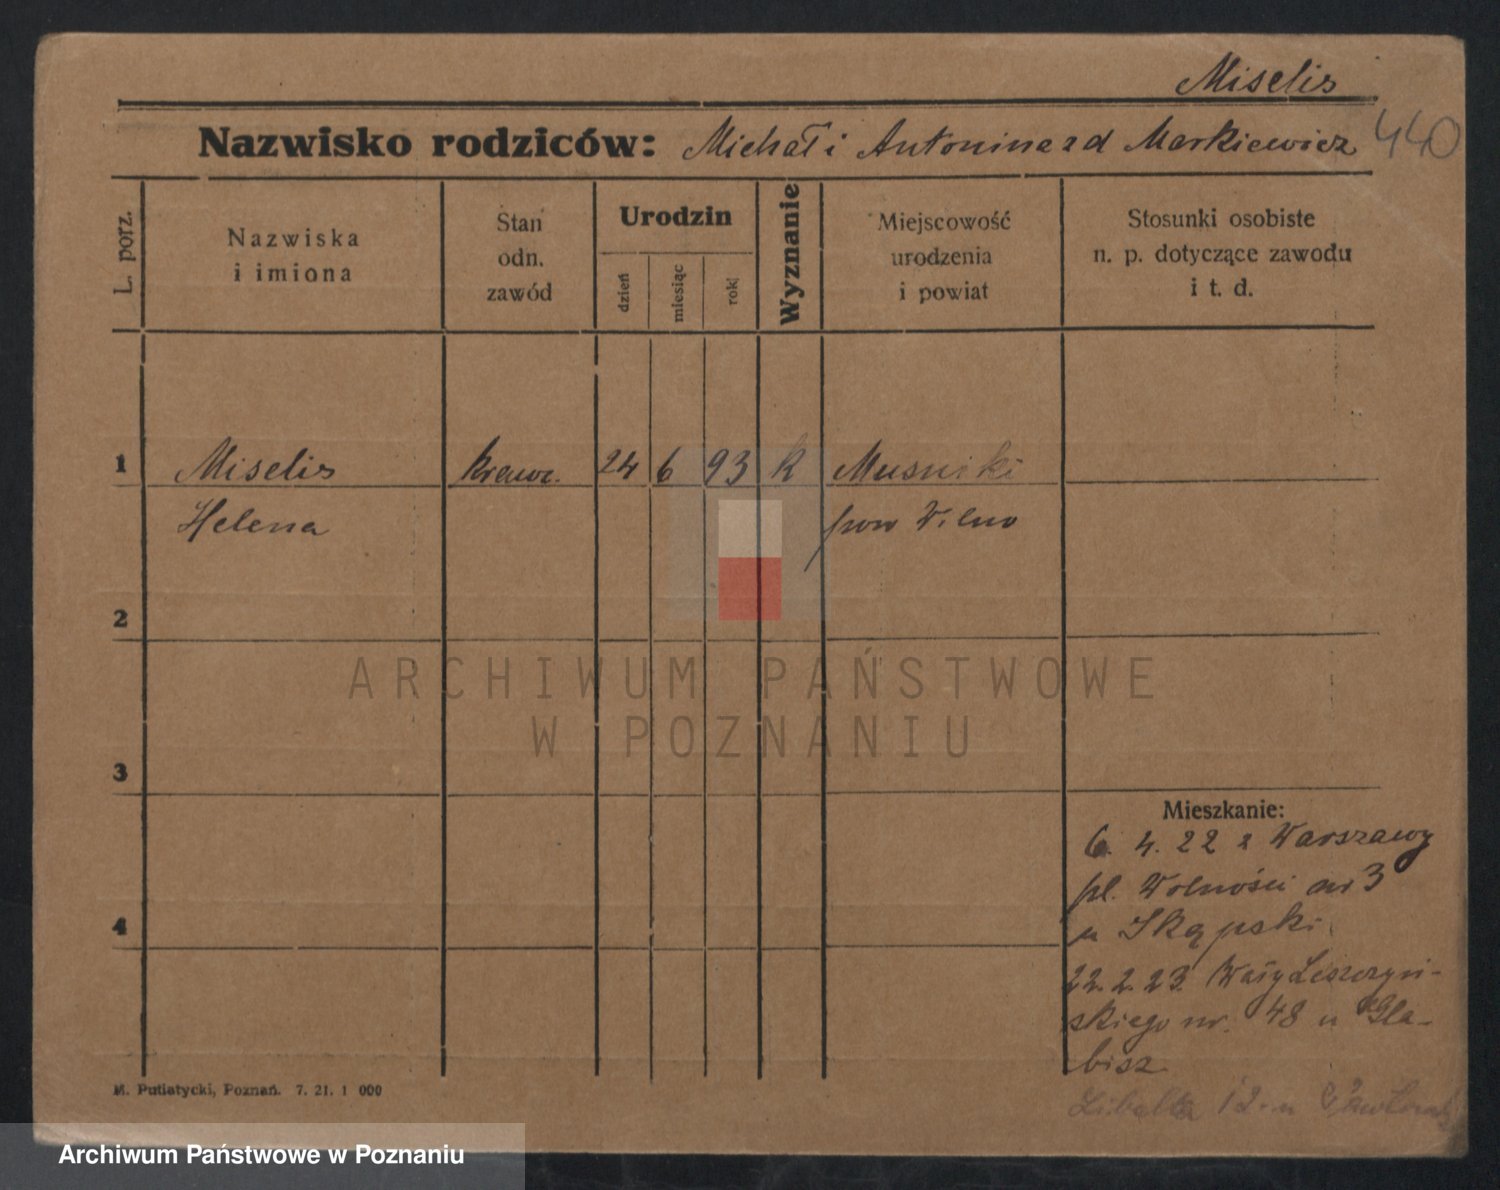 Miselis
Nazwisko rodziców: Michał i Antonina zd Markiewicz 440
L. porz.
Nazwiska
i imiona
Stan
odn.
zawód
Urodzin
dzień
miesiąc
rok
Wyznanie
Miejscowość
urodzenia
i powiat
Stosunki osobiste
n. p. dotyczące zawodu
i t. d.
1 Miselis krawc. 24 6 93 k Musniki
Helena pow Wilno
2
3
4
Mieszkanie:
6. 4. 22 z Warszawy
pl. Wolności nr 3
u Skąpski
22. 2. 23. Wały Leszczyń-
skiego nr. 48 u Gla-
bisz
Libelta 12 u
M. Putiatycki, Poznań. 7. 21. 1 000
ARCHIWUM PAŃSTWOWE
W POZNANIU
Archiwum Państwowe w Poznaniu